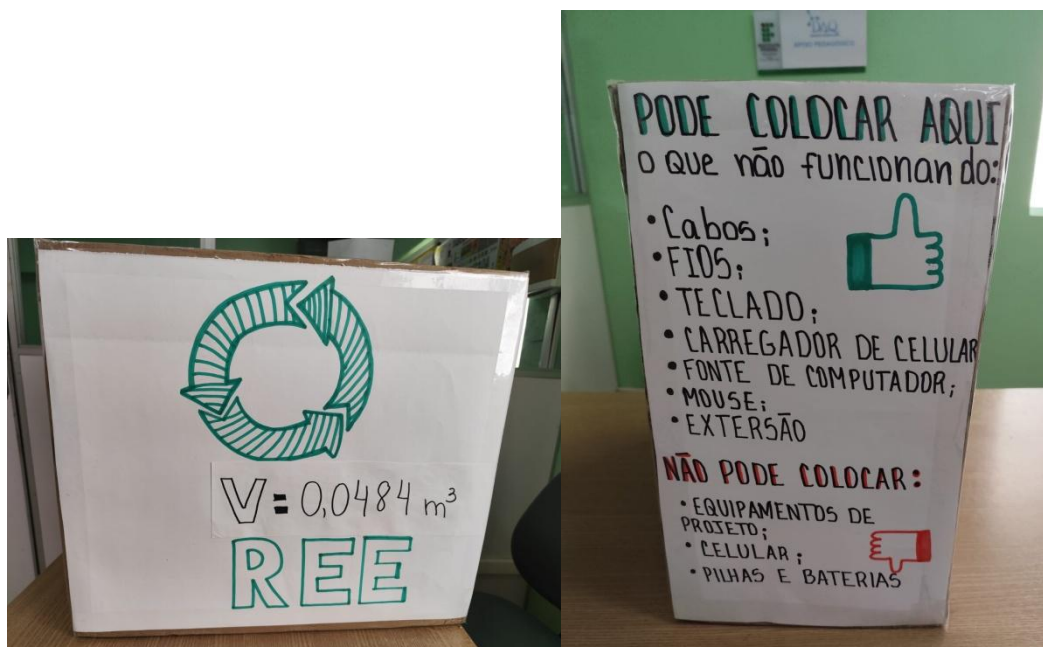 V = 0,0484 m³
REE
APOIO PEDAGÓGICO
PODE COLOCAR AQUI
O QUE NÃO FUNCIONANDO:
• Cabos;
• FIOS;
• TECLADO;
• CARREGADOR DE CELULAR
• FONTE DE COMPUTADOR;
• MOUSE;
• EXTERSÃO
NÃO PODE COLOCAR:
• EQUIPAMENTOS DE
PROJETO;
• CELULAR;
• PILHAS E BATERIAS